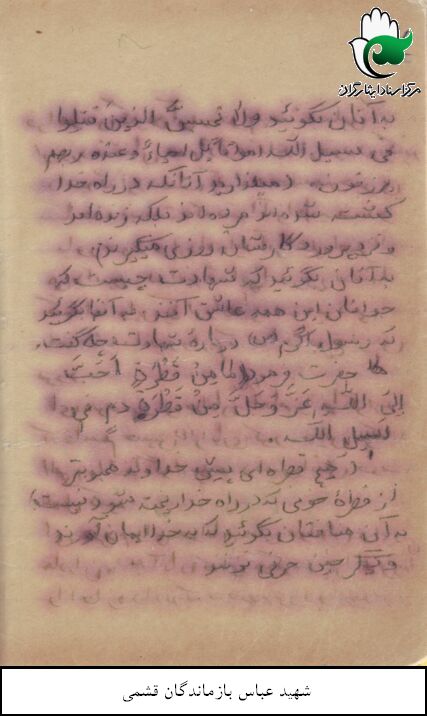 مرکز اسناد ایثارگران
به آنان بگوئید ولا تحسبن الذین قتلوا
فی سبیل الله امواتا بل احیاء عند ربهم
یرزقون. (مپندارید آنانکه در راه خدا
کشته شده‌اند مرده‌اند بلکه زنده‌اند
و نزد پروردگارشان روزی میگیرند.
به آنان بگوئید که شهادت چیست که
جوانان این همه عاشق آنند، به آنها بگوئید
که رسول اکرم (ص) دربارهٔ شهادت چه گفت.
حضرت فرمود: مَا مِنْ قَطْرَةٍ اَحَبَّ
اِلَی اللهِ عَزَّ وَجَلَّ مِنْ قَطْرَةِ دم فی
سبیل الله.
(هیچ قطره‌ای پیش خداوند محبوبتر
از قطرهٔ خونی که در راه خدا ریخته شود نیست)
به آن منافقان بگوئید که به خدا ایمان آورند
و دیگر چنین حرفی نزنند
شهید عباس بازماندگان قشمی